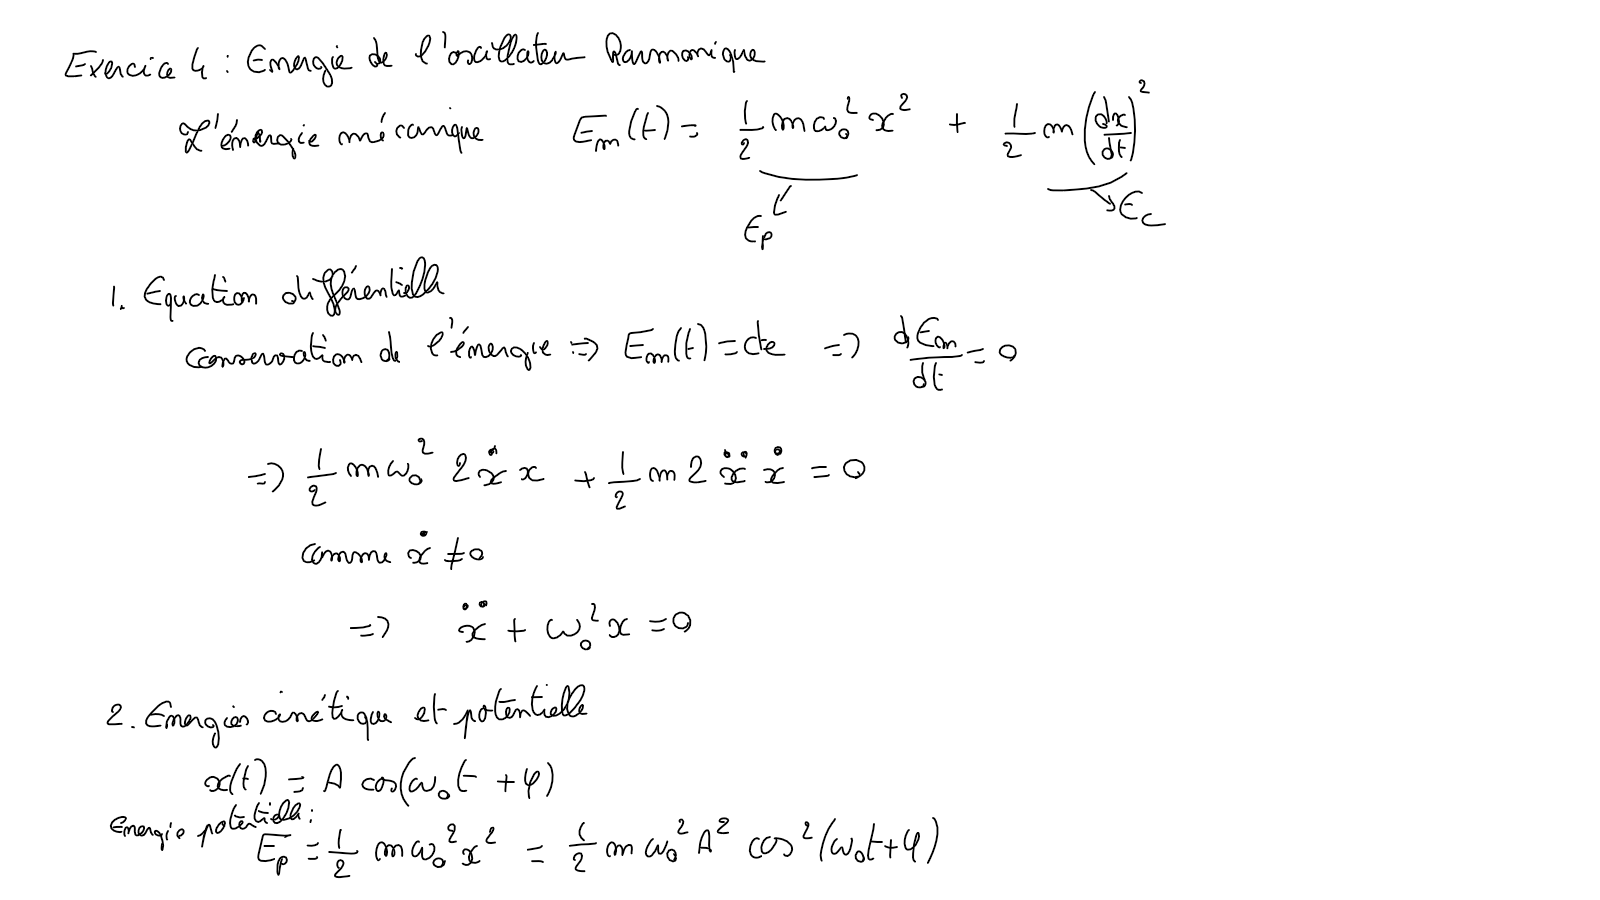 Exercice 4 : Energie de l'oscillateur Harmonique
L'énergie mécanique E_m(t) = 1/2 m ω₀² x² + 1/2 m (dx/dt)²
E_p E_c
1. Equation différentielle
Conservation de l'énergie => E_m(t) = cte => dE_m/dt = 0
=> 1/2 m ω₀² 2 ẋ x + 1/2 m 2 ẍ ẋ = 0
comme ẋ ≠ 0
=> ẍ + ω₀² x = 0
2. Energies cinétique et potentielle
x(t) = A cos(ω₀t + φ)
Energie potentielle :
E_p = 1/2 m ω₀² x² = 1/2 m ω₀² A² cos²(ω₀t + φ)